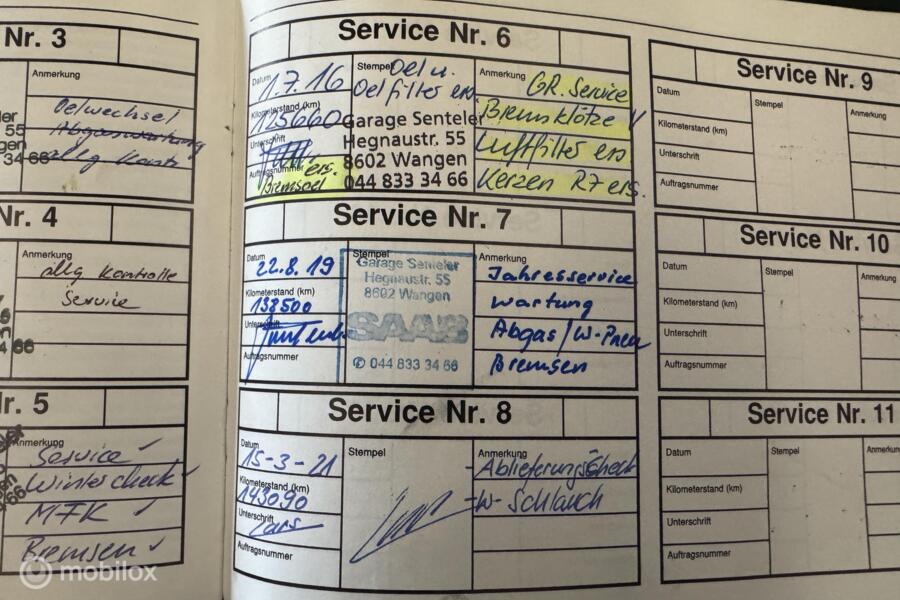 Nr. 3
Anmerkung
Oelwechsel
Abgaswartung
allg Kontr
55
34 66
Nr. 4
Anmerkung
allg Kontrolle
Service
66
Nr. 5
Anmerkung
Service ✓
Wintercheck ✓
MFK ✓
Bremsen ✓
Service Nr. 6
Datum
1.7.16
Kilometerstand (km)
125660
Unterschrift
Auftragsnummer
ers.
Bremsoel
Stempel
Oel u.
Oelfilter ers
Garage Senteler
Hegnaustr. 55
8602 Wangen
044 833 34 66
Anmerkung
GR. Service
Bremsklötze V
Luftfilter ers
Kerzen R7 ers.
Service Nr. 7
Datum
22.8.19
Kilometerstand (km)
138500
Unterschrift
Auftragsnummer
Stempel
Garage Senteler
Hegnaustr. 55
8602 Wangen
SAAB
✆ 044 833 34 66
Anmerkung
Jahresservice
Wartung
Abgas/W-Pneu
Bremsen
Service Nr. 8
Datum
15-3-21
Kilometerstand (km)
143090
Unterschrift
Lars
Auftragsnummer
Stempel
Anmerkung
-Ablieferungscheck
-W-Schlauch
Service Nr. 9
Datum
Kilometerstand (km)
Unterschrift
Auftragsnummer
Stempel
Anmerkung
Service Nr. 10
Datum
Kilometerstand (km)
Unterschrift
Auftragsnummer
Stempel
Anmerkung
Service Nr. 11
Datum
Kilometerstand (km)
Unterschrift
Auftragsnummer
Stempel
Anmerkung
mobilox